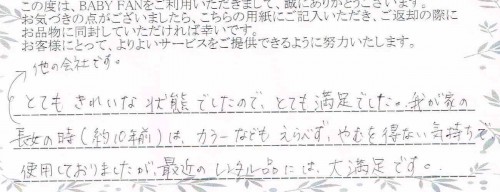 この度は、BABY FANをご利用いただきまして、誠にありがとうございます。
お気づきの点がございましたら、こちらの用紙にご記入いただき、ご返却の際に
お品物に同封していただければ幸いです。
お客様にとって、よりよいサービスをご提供できるように努力いたします。
他の会社です。
とてもきれいな状態でしたので、とても満足でした。我が家の
長女の時(約10年前)は、カラーなどもえらべず、やむを得ない気持ちで
使用しておりましたが、最近のレンタル品には、大満足です。